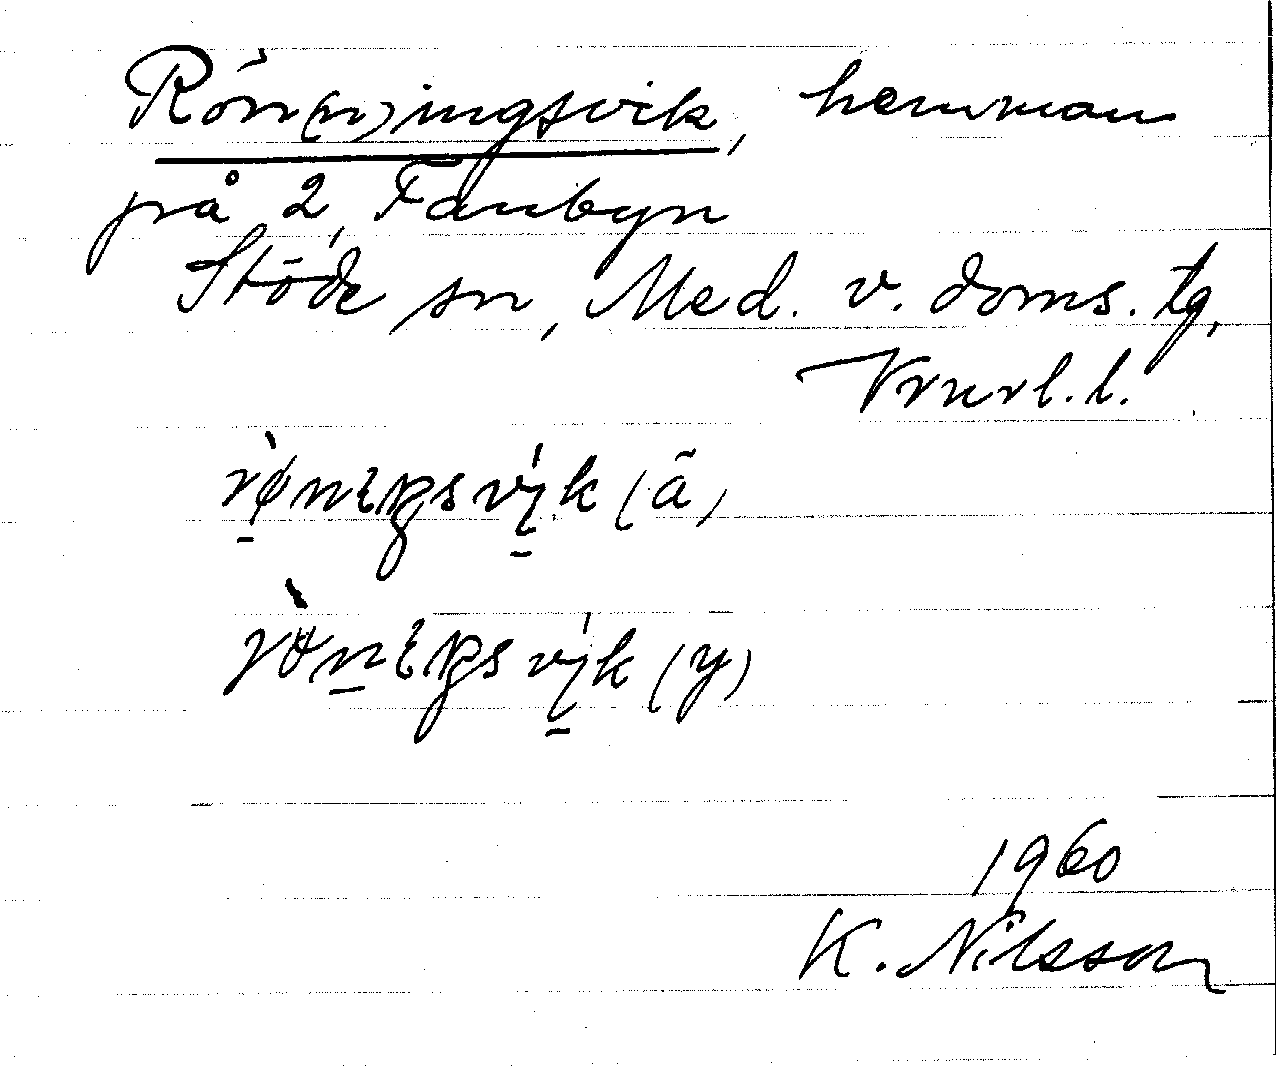 Rön(n)ingsvik, hemman
på 2, Fanbyn
Stöde sn, Med. v. doms. tg,
Vrnrl. l.
(ā)
(y)
1960
K. Nilsson